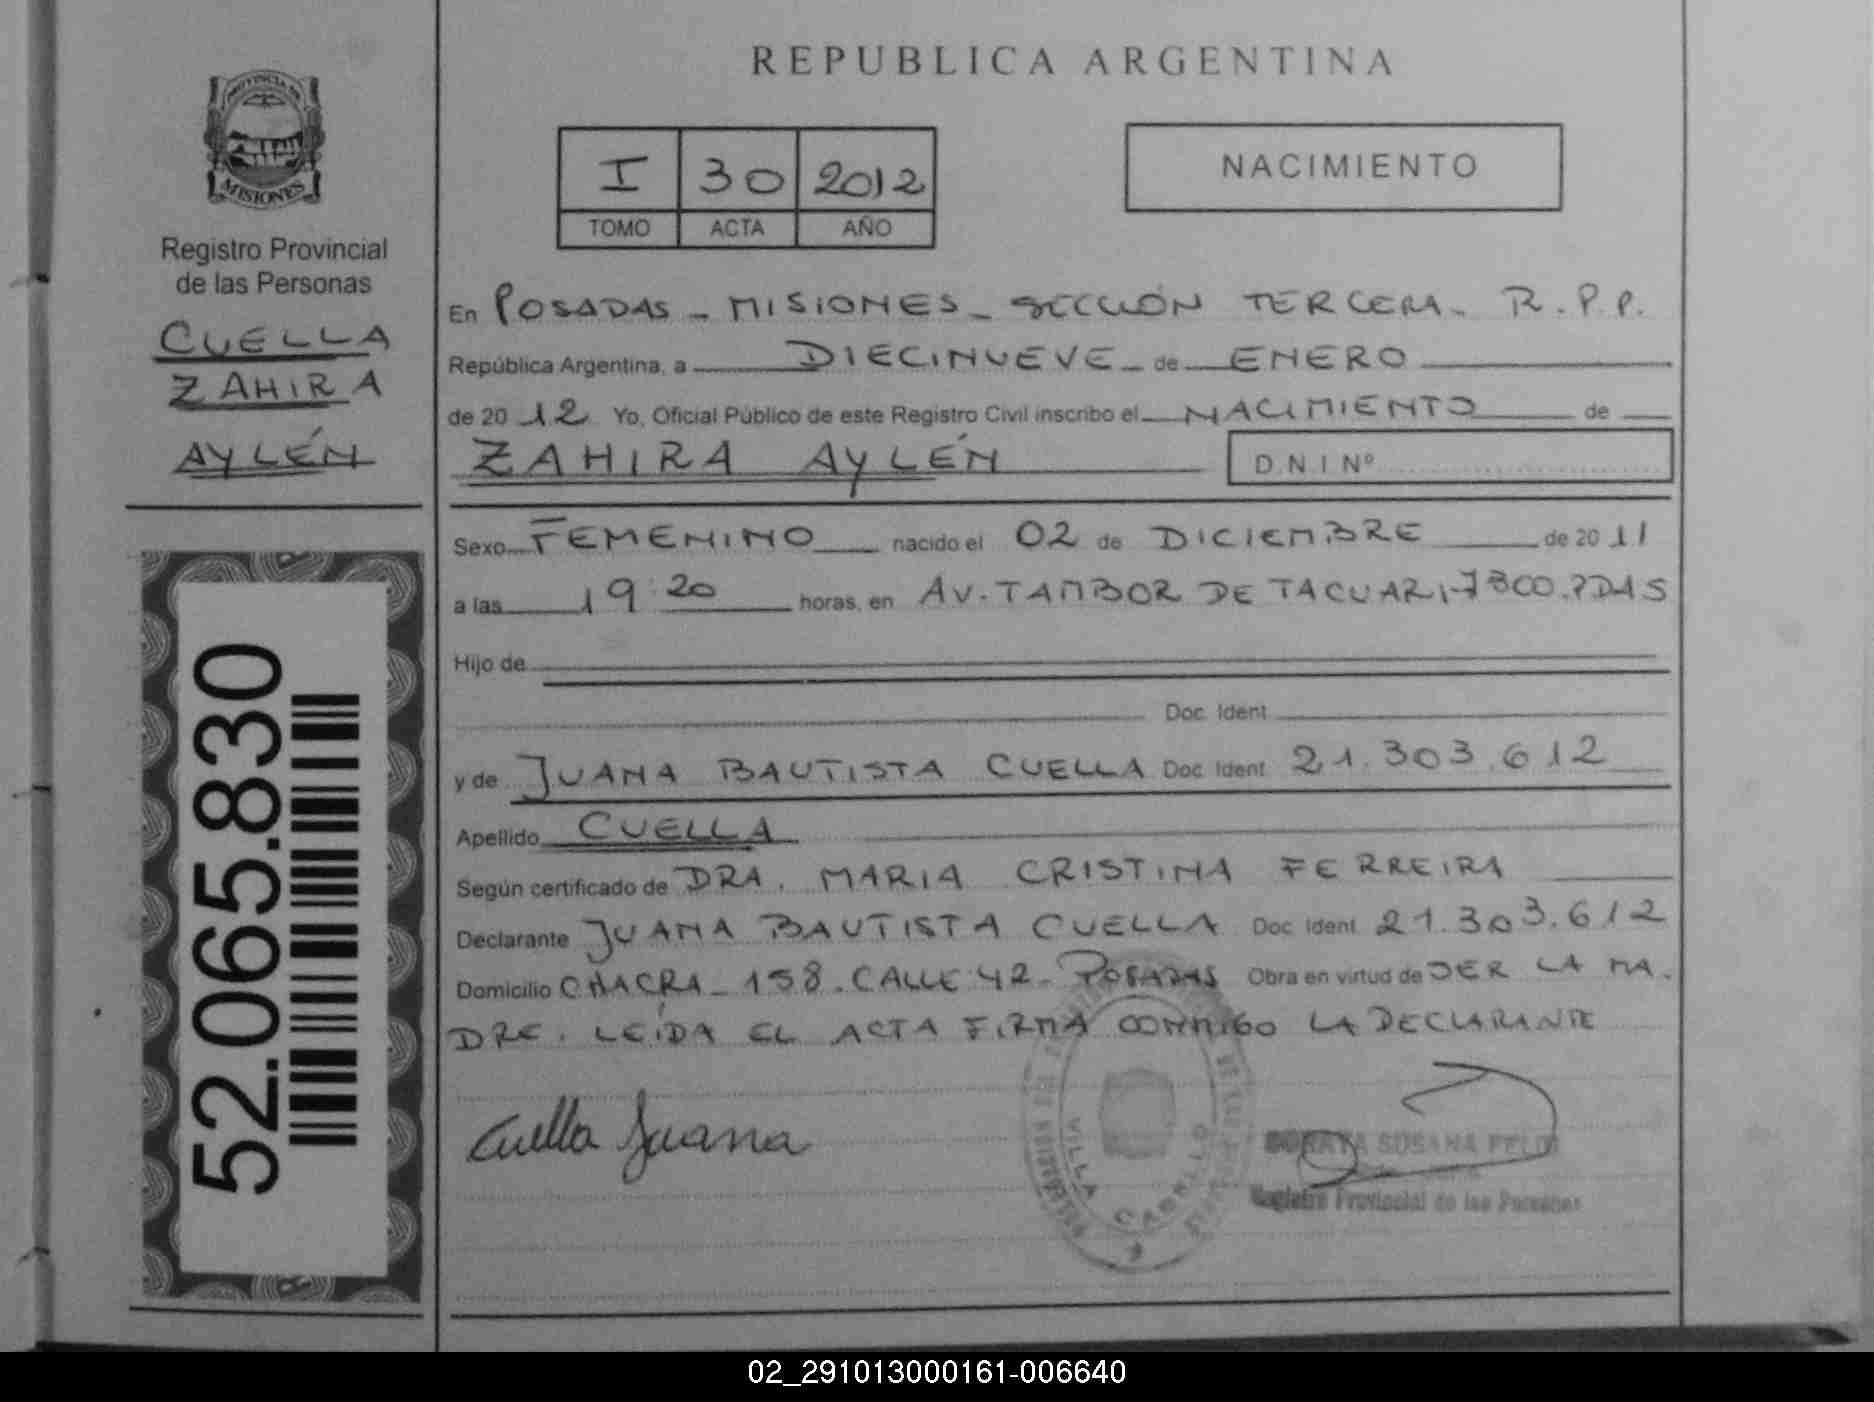 REPUBLICA ARGENTINA
PROVINCIA DE
MISIONES
Registro Provincial
de las Personas
CUELLA
ZAHIRA
AYLÉN
52.065.830
I 30 2012
TOMO ACTA AÑO
NACIMIENTO
En POSADAS - MISIONES - SECCIÓN TERCERA - R.P.P.
República Argentina, a DIECINUEVE de ENERO
de 2012 Yo, Oficial Público de este Registro Civil inscribo el NACIMIENTO de
ZAHIRA AYLÉN D.N.I Nº
Sexo FEMENINO nacido el 02 de DICIEMBRE de 2011
a las 19:20 horas, en AV. TAMBOR DE TACUARI PDAS
Hijo de
Doc. Ident.
y de JUANA BAUTISTA CUELLA Doc. Ident. 21.303.612
Apellido CUELLA
Según certificado de DRA. MARIA CRISTINA FERREIRA
Declarante JUANA BAUTISTA CUELLA Doc. Ident. 21.303.612
Domicilio CHACRA - 158 - CALLE 42 - POSADAS Obra en virtud de SER LA MA-
DRE. LEÍDA EL ACTA FIRMA CONMIGO LA DECLARANTE
Cuella Juana
VILLA CABELLO
SORAYA SUSANA
Registro Provincial de las Personas
02_291013000161-006640